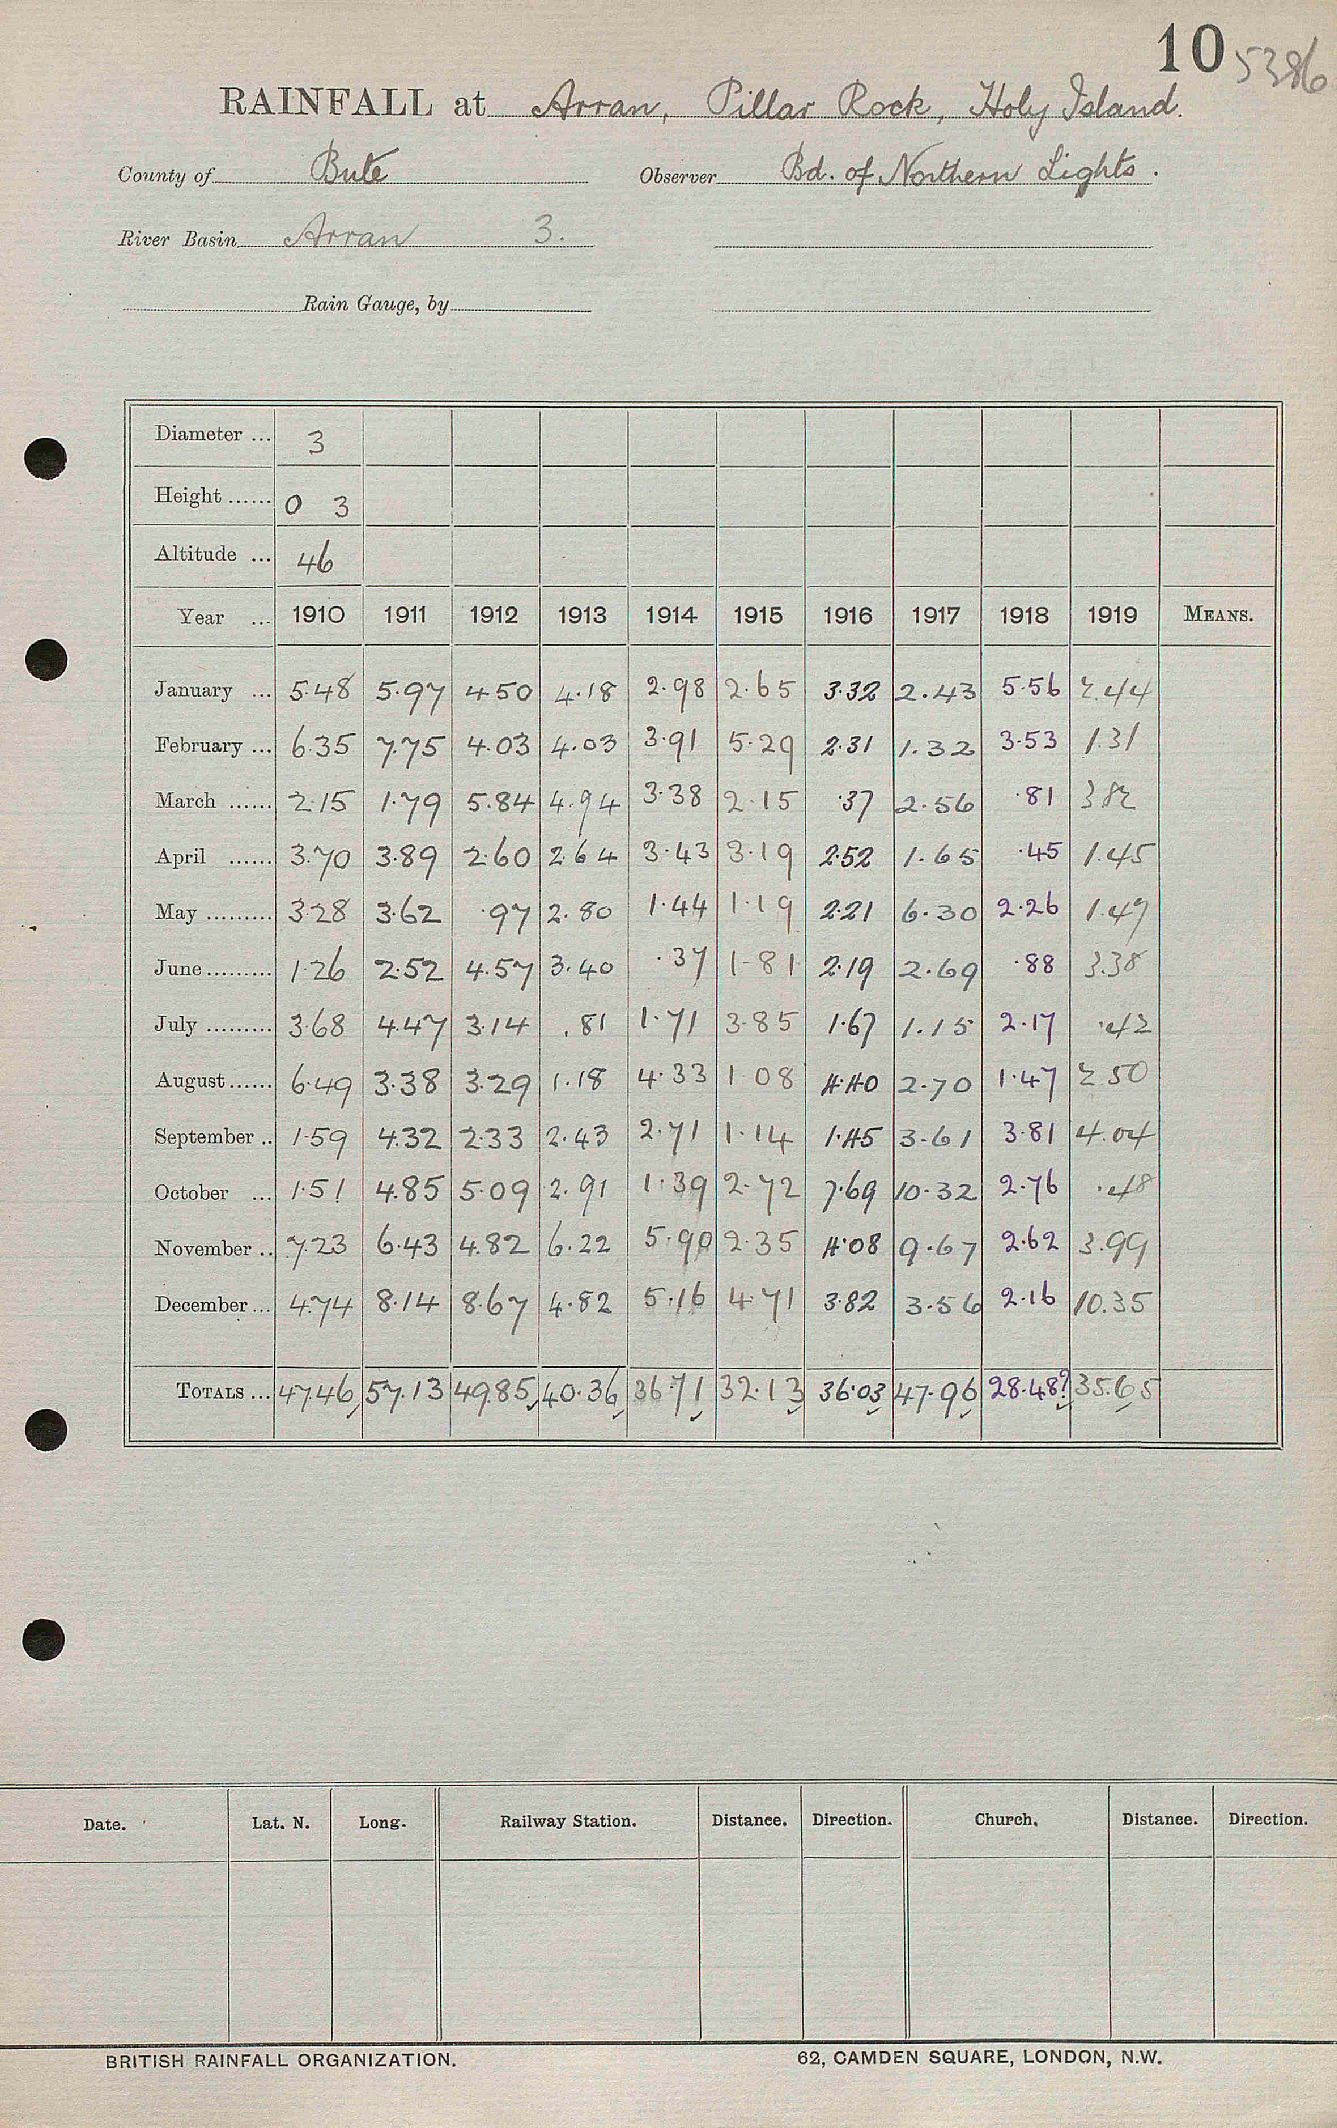 10 5386
RAINFALL at Arran, Pillar Rock, Holy Island.
County of Bute Observer Bd. of Northern Lights.
River Basin Arran 3.
Rain Gauge, by
Diameter ... 3
Height ...... 0 3
Altitude ... 46
Year ... 1910 1911 1912 1913 1914 1915 1916 1917 1918 1919 MEANS.
January ... 5.48 5.97 4.50 4.18 2.98 2.65 3.32 2.43 5.56 2.44
February ... 6.35 7.75 4.03 4.03 3.91 5.29 2.31 1.32 3.53 1.31
March ...... 2.15 1.79 5.84 4.94 3.38 2.15 .37 2.56 .81 3.82
April ...... 3.70 3.89 2.60 2.64 3.43 3.19 2.52 1.65 .45 1.45
May ......... 3.28 3.62 .97 2.80 1.44 1.19 2.21 6.30 2.26 1.47
June ......... 1.26 2.52 4.57 3.40 .37 1.81 2.19 2.69 .88 3.38
July ......... 3.68 4.47 3.14 .81 1.71 3.85 1.67 1.15 2.17 .42
August ...... 6.49 3.38 3.29 1.18 4.33 1.08 4.40 2.70 1.47 2.50
September .. 1.59 4.32 2.33 2.43 2.71 1.14 1.45 3.61 3.81 4.04
October ... 1.51 4.85 5.09 2.91 1.39 2.72 7.69 10.32 2.76 .48
November .. 7.23 6.43 4.82 6.22 5.90 2.35 4.08 9.67 2.62 3.99
December ... 4.74 8.14 8.67 4.82 5.16 4.71 3.82 3.56 2.16 10.35
TOTALS ... 47.46 57.13 49.85 40.36 36.71 32.13 36.03 47.96 28.48? 35.65
Date. Lat. N. Long. Railway Station. Distance. Direction. Church. Distance. Direction.
BRITISH RAINFALL ORGANIZATION. 62, CAMDEN SQUARE, LONDON, N.W.